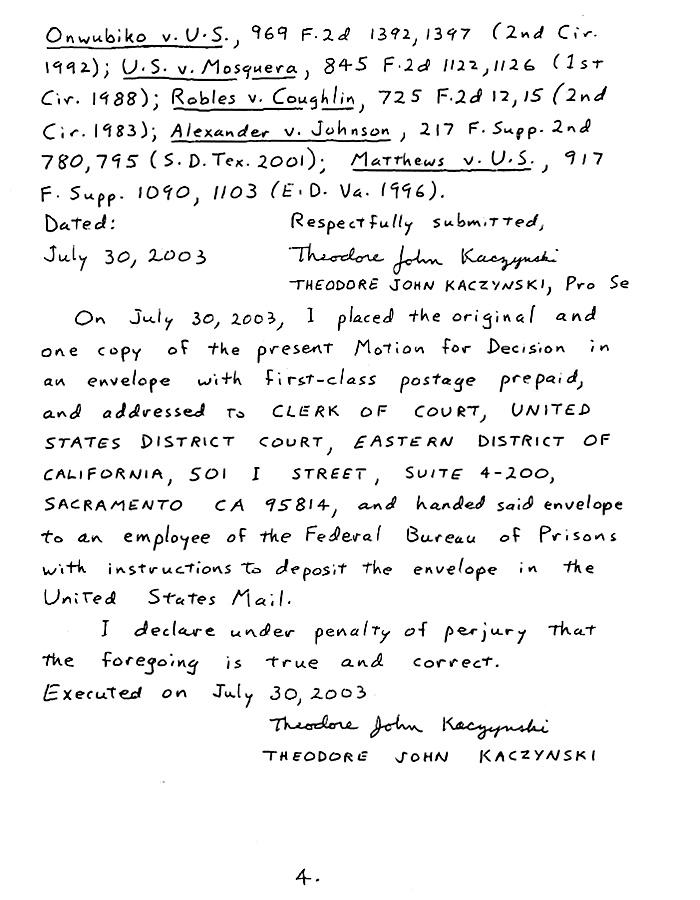 Onwubiko v. U.S., 969 F.2d 1392, 1397 (2nd Cir.
1992); U.S. v. Mosquera, 845 F.2d 1122, 1126 (1st
Cir. 1988); Robles v. Coughlin, 725 F.2d 12, 15 (2nd
Cir. 1983); Alexander v. Johnson, 217 F. Supp. 2nd
780, 795 (S.D. Tex. 2001); Matthews v. U.S., 917
F. Supp. 1090, 1103 (E.D. Va. 1996).
Dated: Respectfully submitted,
July 30, 2003 Theodore John Kaczynski
THEODORE JOHN KACZYNSKI, Pro Se
On July 30, 2003, I placed the original and
one copy of the present Motion for Decision in
an envelope with first-class postage prepaid,
and addressed to CLERK OF COURT, UNITED
STATES DISTRICT COURT, EASTERN DISTRICT OF
CALIFORNIA, 501 I STREET, SUITE 4-200,
SACRAMENTO CA 95814, and handed said envelope
to an employee of the Federal Bureau of Prisons
with instructions to deposit the envelope in the
United States Mail.
I declare under penalty of perjury that
the foregoing is true and correct.
Executed on July 30, 2003
Theodore John Kaczynski
THEODORE JOHN KACZYNSKI
4.